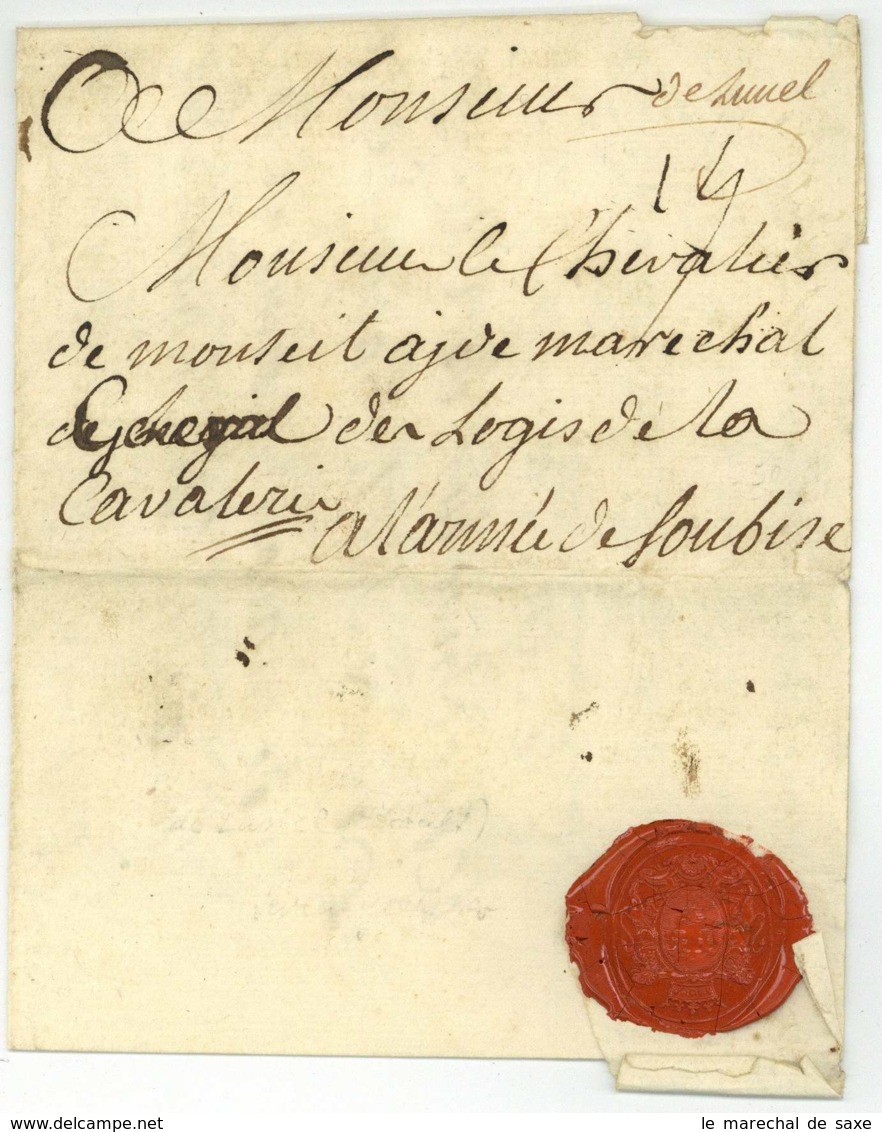 A Monsieur de Lunel
14
Monsieur le Chevalier
de monteit ajde marechal
general des Logis de la
Cavalerie
a l'armée de Soubise
le marechal de saxe